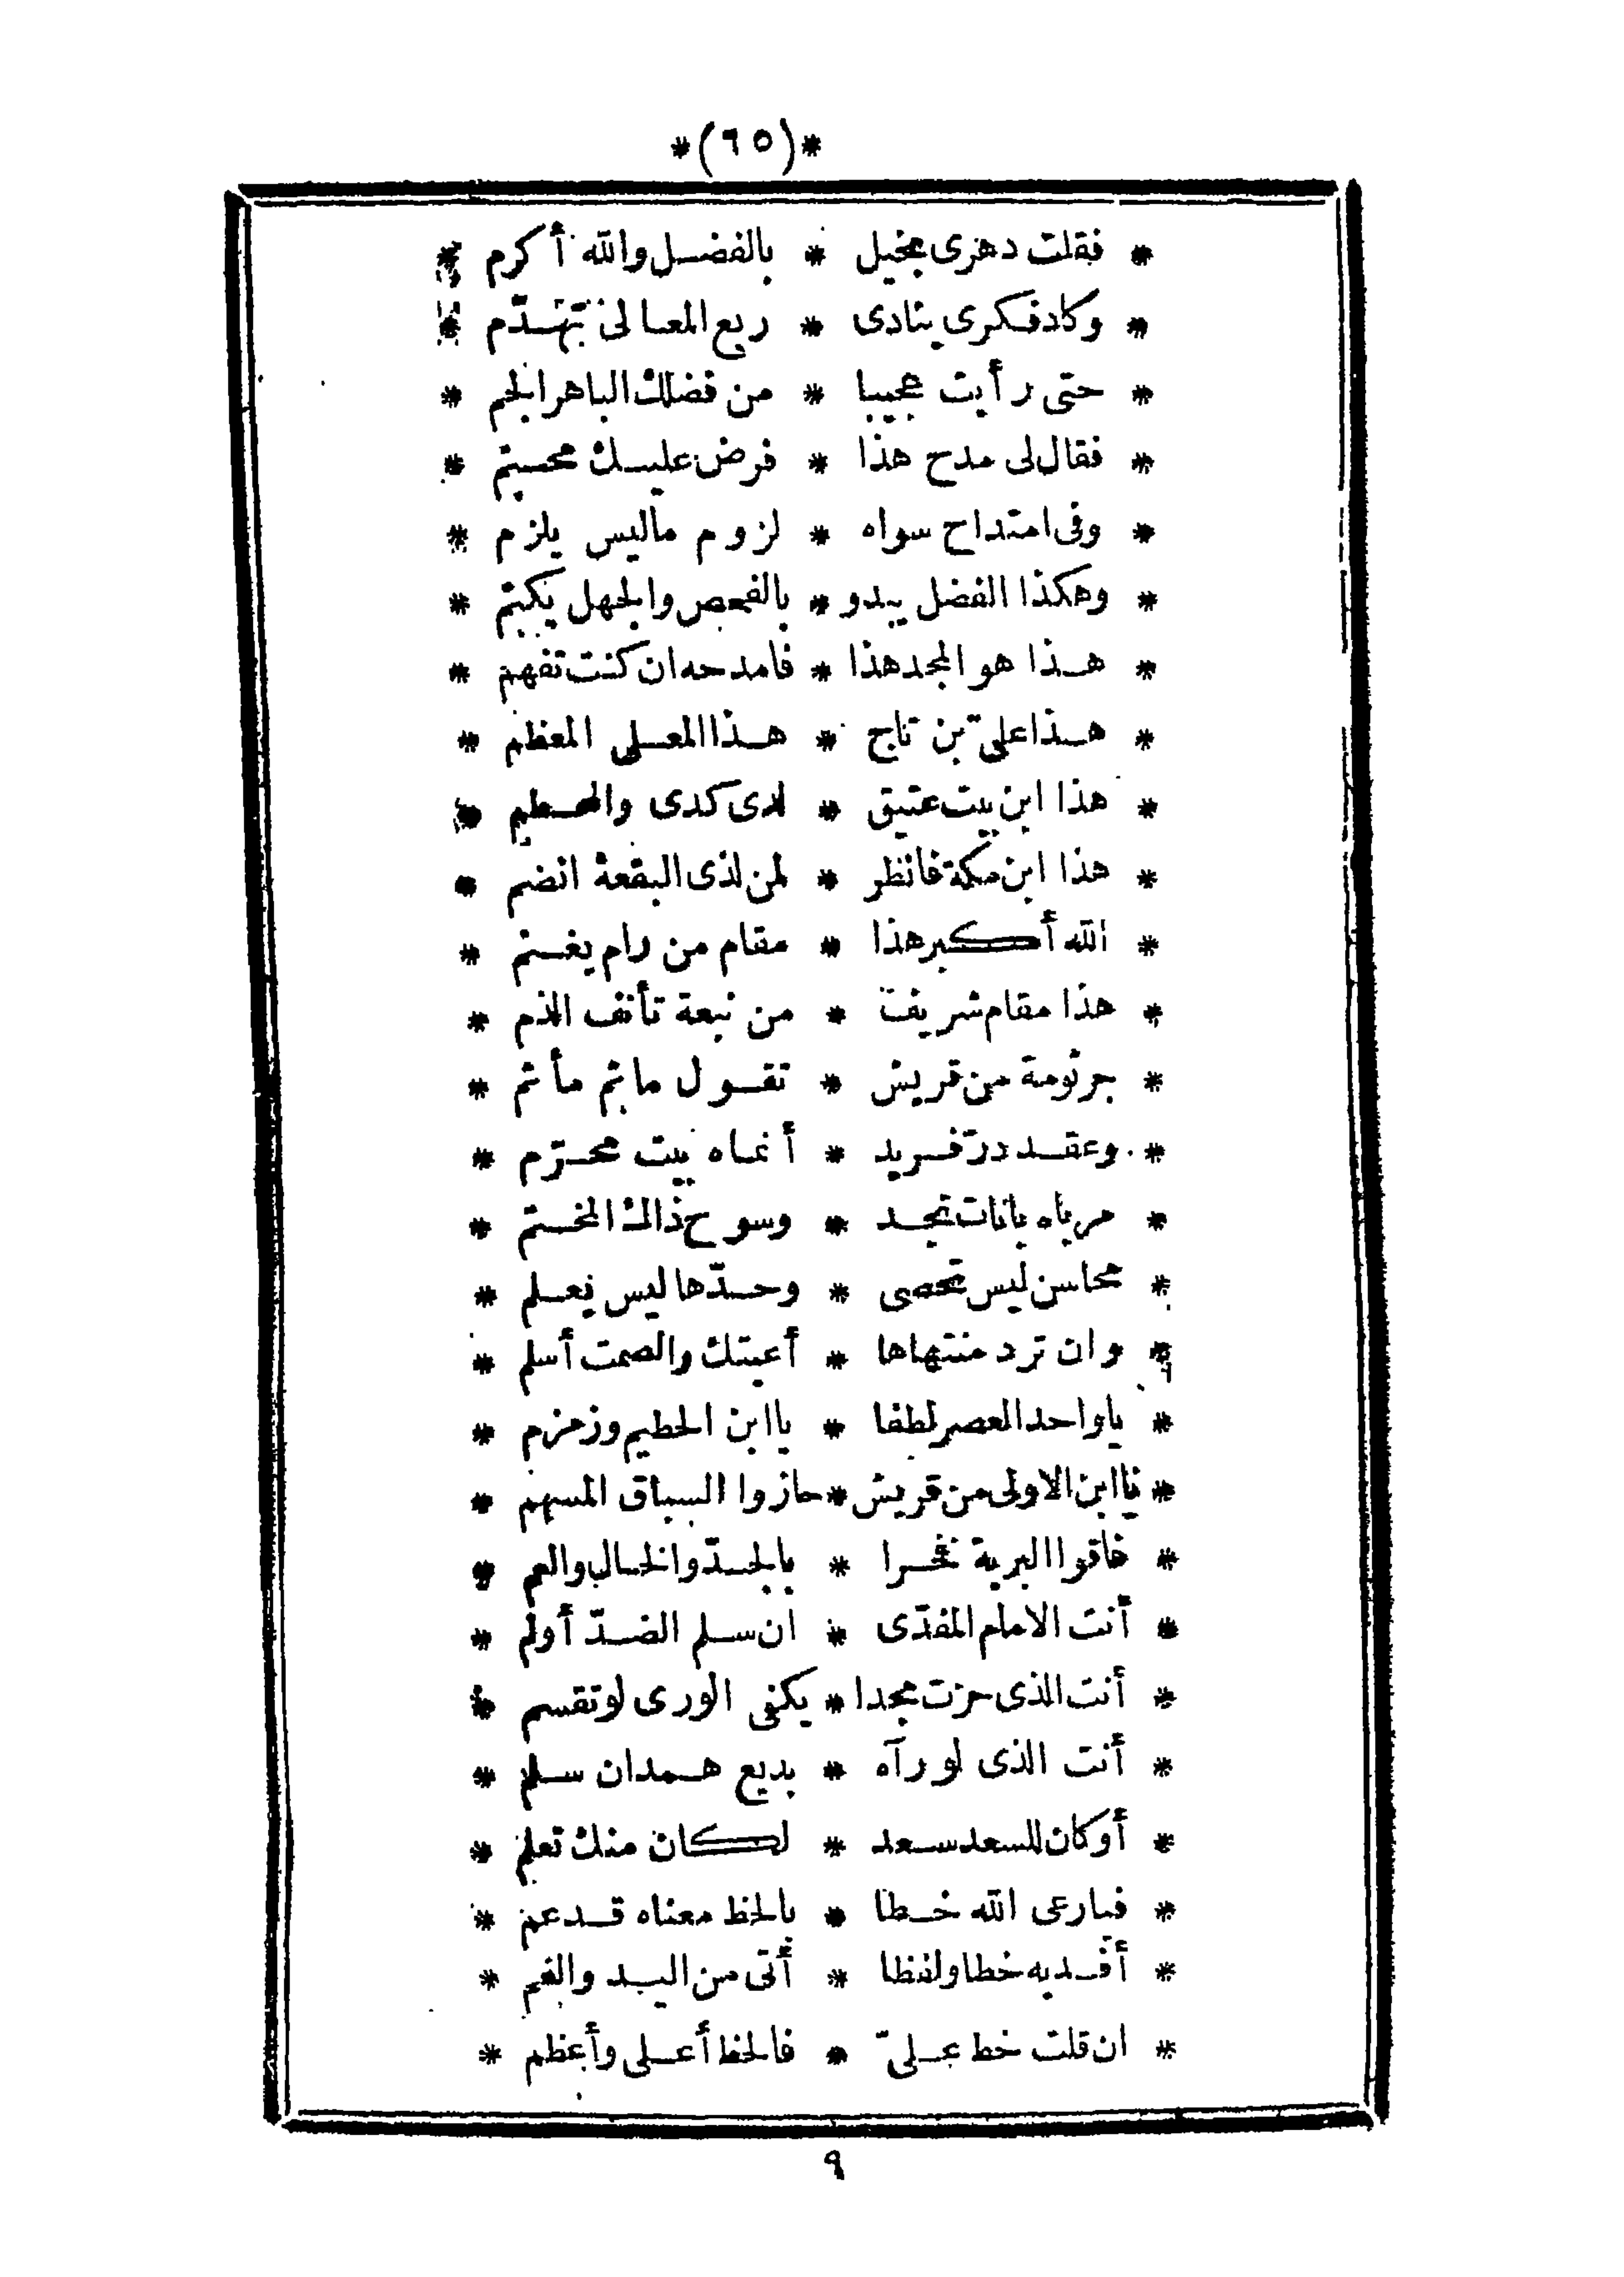 *(٦٥)*
* فقلت دهرى بخيل * بالفضل والله أكرم *
* وكاد فكرى ينادى * ربع المعالى تهدّم *
* حتى رأيت عجيبا * من فضلك الباهر الجم *
* فقال لى مدح هذا * فرض عليك محتم *
* وفى امتداح سواه * لزوم ماليس يلزم *
* وهكذا الفضل يبدو * بالفحص والجهل يكتم *
* هذا هو المجد هذا * فامدحه ان كنت تفهم *
* هذا علىّ بن تاج * هذا المعلى المعظم *
* هذا ابن بيت عتيق * لدى كدى والمحطم *
* هذا ابن مكة فانظر * لمن لذى البقعة انضم *
* الله أكبر هذا * مقام من رام يغنم *
* هذا مقام شريف * من نبعة تأنف الذم *
* جرثومة من قريش * تقول ماثم مأثم *
* وعقد درّ فريد * أنماه بيت محرّم *
* مرباه بانات نجد * وسوح ذاك المخيم *
* محاسن ليس تحصى * وحدّها ليس يعلم *
* وان ترد منتهاها * أعيتك والصمت أسلم *
* يا واحد العصر لطفا * يا ابن الحطيم وزمزم *
* يا ابن الاولى من قريش * حازوا السباق المسهم *
* فاقوا البرية فخرا * بالجدّ والخال والعم *
* أنت الامام المفدّى * ان سلم الضدّ أولم *
* أنت الذى حزت مجدا * يكفى الورى لو تقسم *
* أنت الذى لو رآه * بديع همدان سلم *
* أوكان للسعد سعد * لكان منك تعلم *
* فيارعى الله خطا * بالحظ معناه قد عم *
* أفديه خطا ولفظا * أتى من اليد والفم *
* ان قلت خط علىّ * فالحظ أعلى وأعظم *
٩